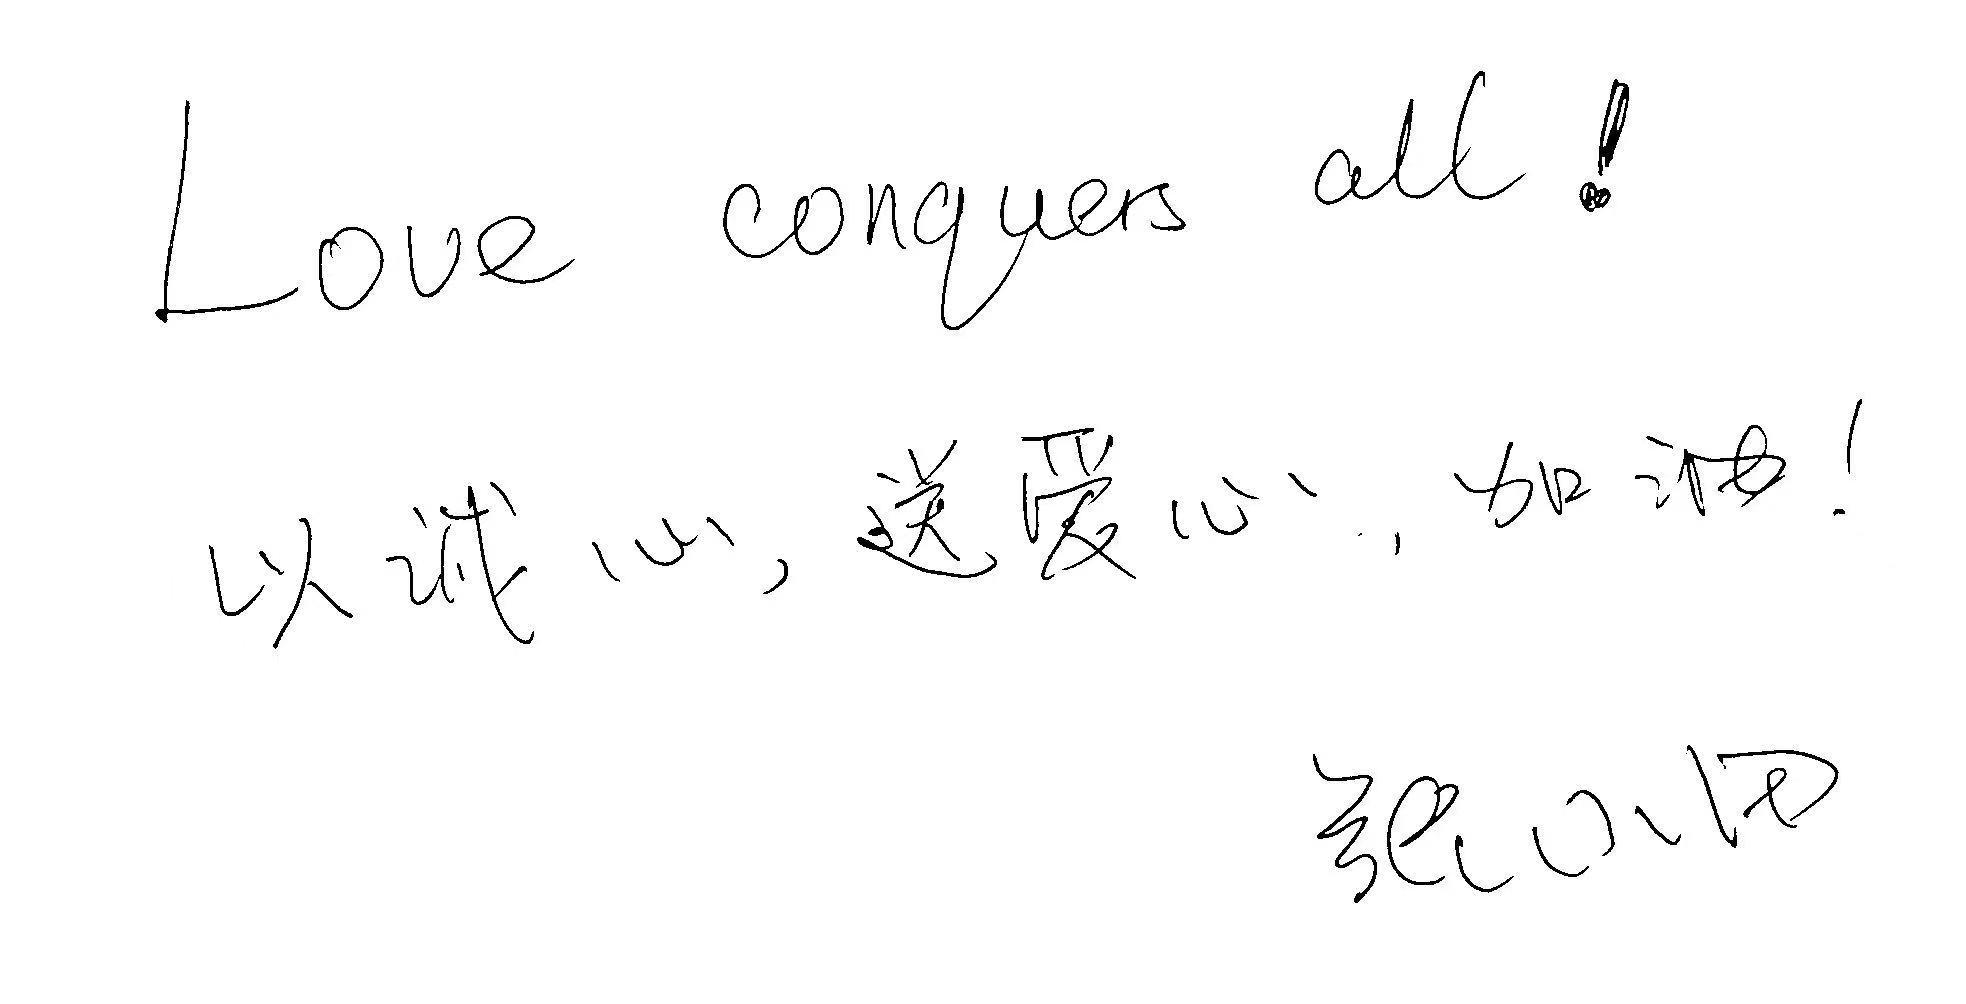 Love conquers all!
以诚心,送爱心,加油!